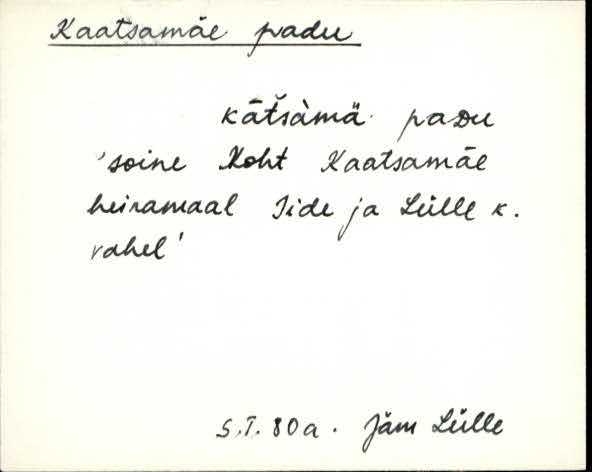 Kaatsamäe padu
kāt̆sàmä· paDu
'soine koht Kaatsamäe
heinamaal Iide ja Lülle k.
vahel'
S.T. 80 a. Jäm Lülle